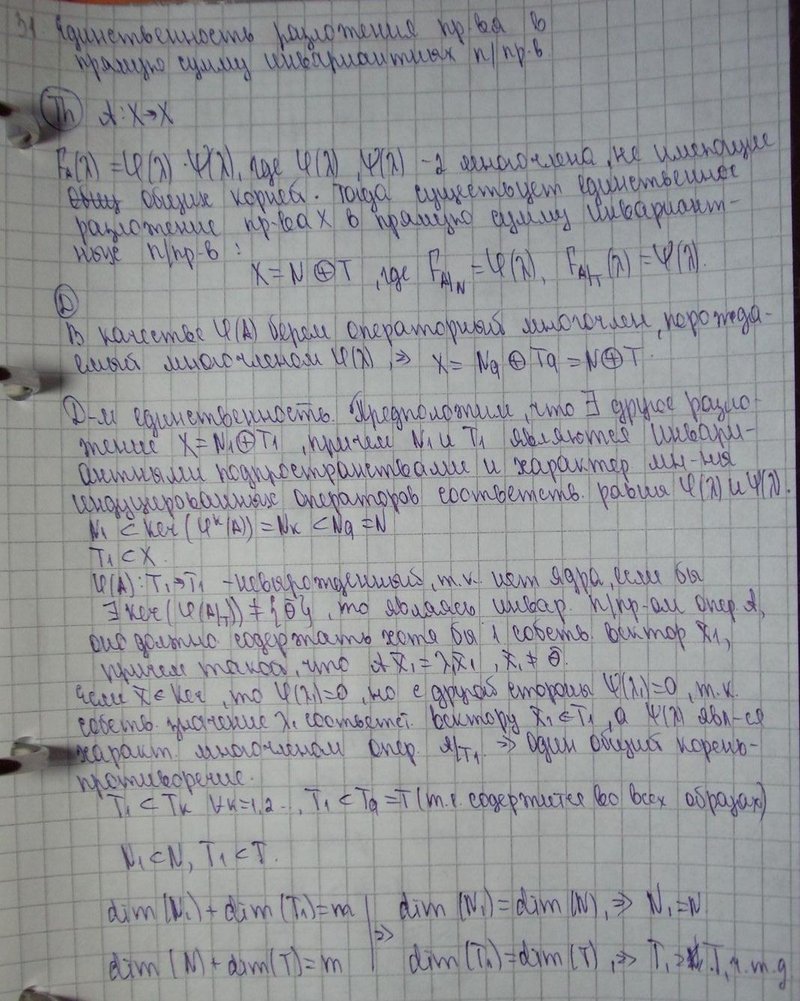 31 Единственность разложения пр-ва в
прямую сумму инвариантных п/пр-в.
Th A: X→X
F_A(λ) = φ(λ)·ψ(λ), где φ(λ), ψ(λ) - 2 многочлена, не имеющие
общих корней. Тогда существует единственное
разложение пр-ва X в прямую сумму инвариант-
ных п/пр-в:
X = N ⊕ T, где F_{A|N} = φ(λ), F_{A|T}(λ) = ψ(λ).
D
В качестве φ(A) берем операторный многочлен, порожда-
емый многочленом φ(λ), ⇒ X = N_q ⊕ T_q = N ⊕ T.
D-м единственность. Предположим, что ∃ другое разло-
жение X = N₁ ⊕ T₁, причем N₁ и T₁ являются инвари-
антными подпространствами и характер. мн-ны
индуцированных операторов соответств. равны φ(λ) и ψ(λ).
N₁ ⊂ Ker(φᵏ(A)) = N_k ⊂ N_q = N
T₁ ⊂ X
φ(A): T₁→T₁ - невырожденный, т.к. нет ядра, если бы
∃ Ker(φ(A|T₁)) ≠ {θ̄}, то являясь инвар. п/пр-ом опер. A,
оно должно содержать хотя бы 1 собств. вектор x̄₁,
причем такой, что A x̄₁ = λ₁x̄₁, x̄₁ ≠ θ̄.
Если x̄ ∈ Ker, то φ(λ₁)=0, но с другой стороны ψ(λ₁)=0, т.к.
собств. значение λ₁ соответст. вектору x̄₁ ∈ T₁, а ψ(λ) явл-ся
характ. многочленом опер. A|T₁ ⇒ один общий корень-
противоречие.
T₁ ⊂ T_k ∀k=1,2..., T₁ ⊂ T_q = T (т.е. содержится во всех образах)
N₁ ⊂ N, T₁ ⊂ T.
dim(N₁) + dim(T₁) = m | ⇒ dim(N₁) = dim(N), ⇒ N₁ = N
dim(N) + dim(T) = m | dim(T₁) = dim(T), ⇒ T₁ = T, ч.т.д